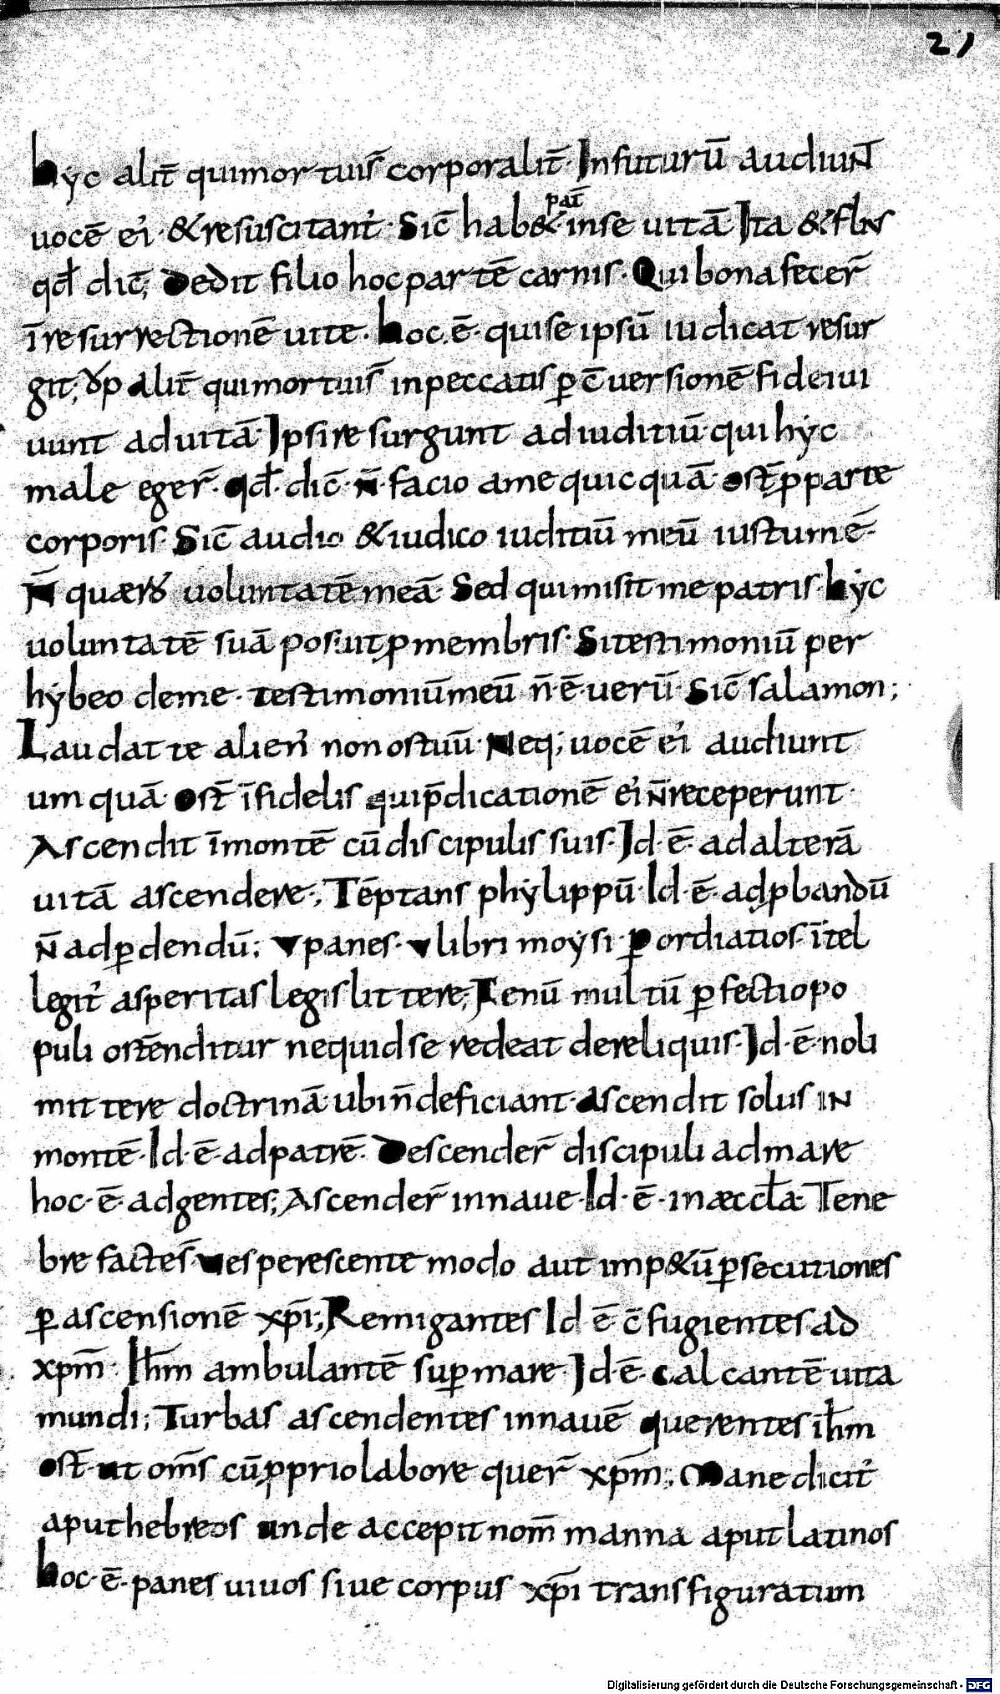 21
hyc alit̄ qui mortuis̄ corporalit̄. In futurū audiuN̄
uocē ei᾽ & resuscitant᾽. Sic̄ hab& pat̄ in se uitā Ita & filiis
qđ dic̄; Dedit filio hoc partē carnis. Qui bona fecer̄
ī resurrectionē uite. hoc. ē. qui se ipsū iudicat resur
git; alit̄ qui mortuis̄ in peccatis p̱ c̄uersionē fidei ui
uunt ad uitā Ipsi resurgunt ad iuditiū qui hyc
male eger̄. qđ. dic̄. N̄. facio a me quicquā. ost̄ p̱ parte
corporis Sic̄ audio & iudico iuditiū meū iustum ē.
N̄ quæro uoluntatē meā. Sed qui misit me patris. hyc
uoluntatē suā posuit p̱ membris. Si testimoniū per
hybeo de me. testimoniū meū n̄ ē uerū. Sic̄ salamon;
Laudat te alien᾽ non os tuū Neq; uocē ei᾽ audiunt
umquā. ost̄ īfidelis qui p̄dicationē ei᾽ N̄ receperunt.
Ascendit ī montē cū discipulis suis. Id. ē. ad alterā
uitā ascendere; Tēptans phylippū. Id. ē. ad p̱bandū
N̄ ad p̱dendū; v panes. v libri moysi. p̱ ordiatios. ītel
legit᾽ asperitas legis littere; Fenū multū p̱fectio po
puli ostēnditur ne quid se redeat de reliquis. Id. ē. noli
mittere doctrinā ubi n̄ deficiant. Ascendit solus IN
montē. Id. ē. ad patrē. Descender̄ discipuli ad mare
hoc. ē. ad gentes; Ascender̄ in naue. Id. ē. in æccl̄a. Tene
bre factes̄ uesperescente modo aut imp&ū p̱secutiones
p̱ ascensionē xp̄i; Remigantes Id ē c̄fugientes ad
xp̄m. Ih̄m ambulantē sup̱ mare. Id. ē. calcantē uita
mundi; Turbas ascendentes in nauē querentes ih̄m
ost̄. ut om̄s cū p̱prio labore quer̄ xp̄m; Mane dicit᾽
aput hebreos unde accepit nom̄ manna aput latinos
hoc. ē. panes uiuos siue corpus xp̄i transfiguratum
Digitalisierung gefördert durch die Deutsche Forschungsgemeinschaft - DFG